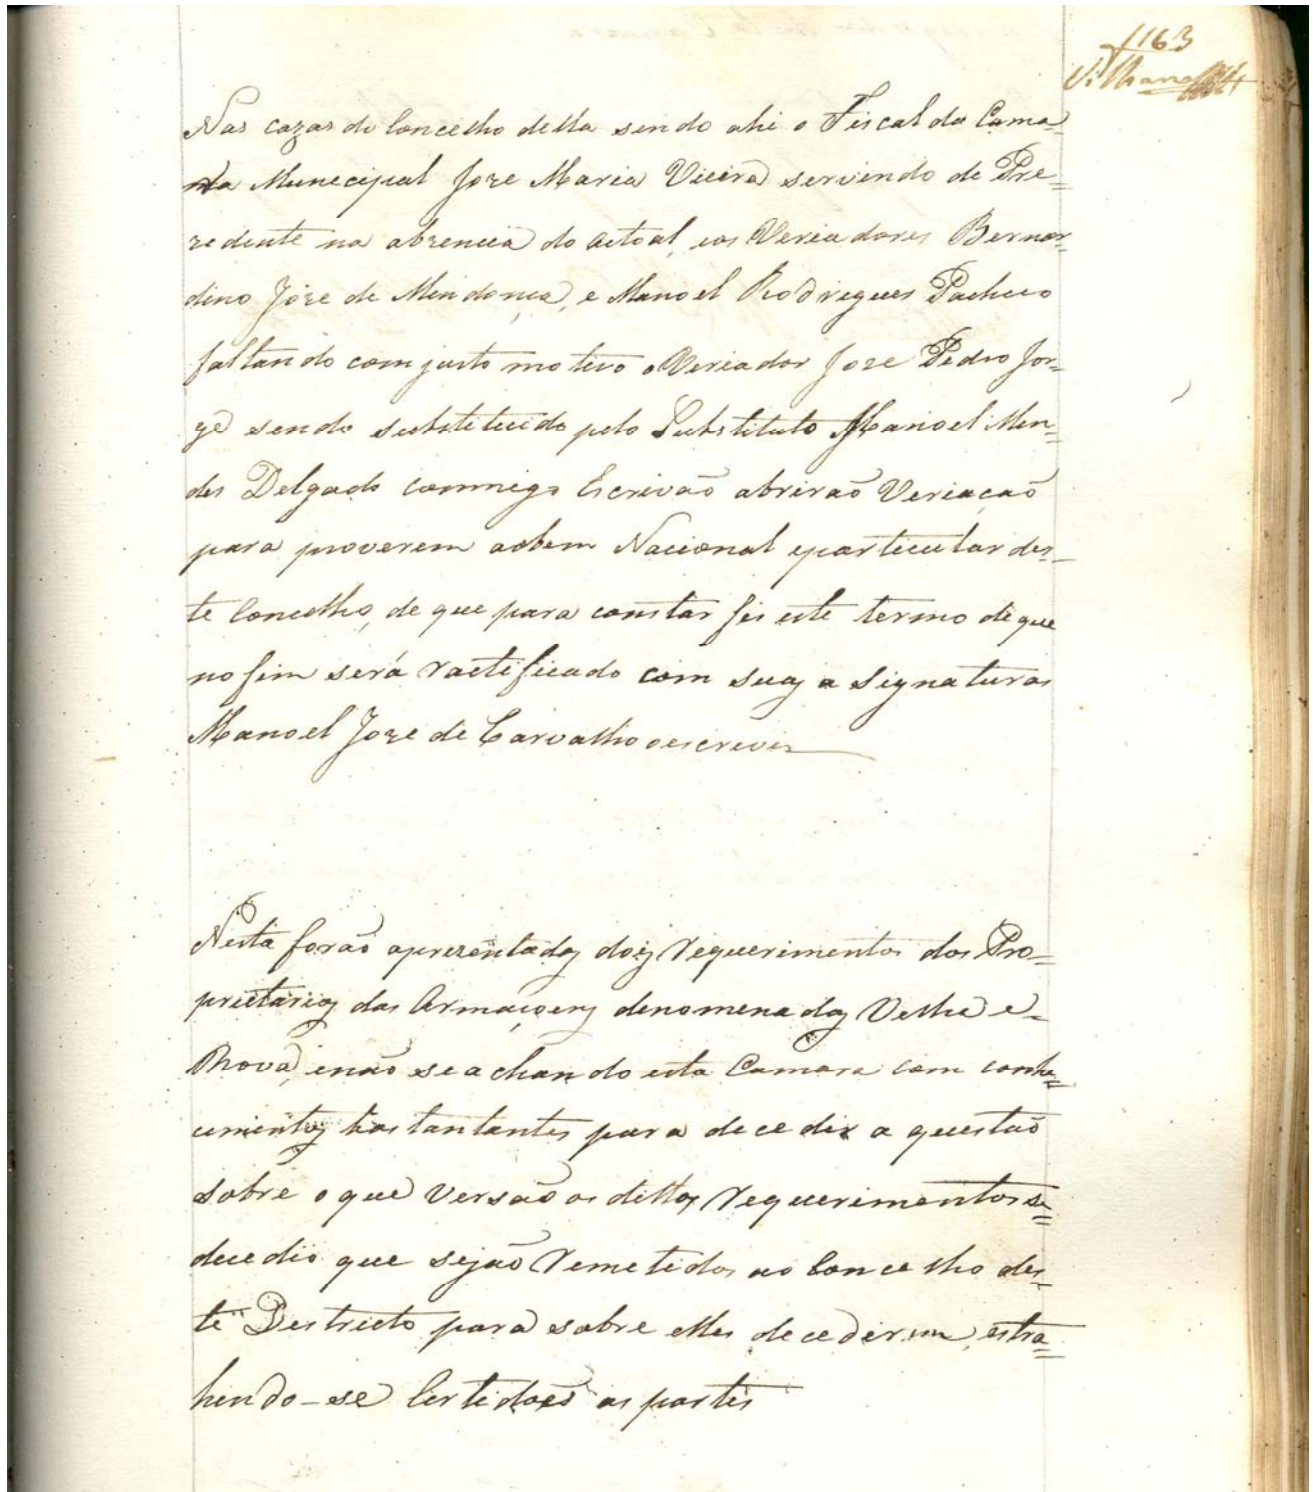 163
Nas cazas do Concelho della sendo ahi o Fiscal da Cama=
ra Munecipal Joze Maria Vieira servindo de Pre=
zedente na abzencia do actoal, eos Veriadores Bernar=
dino Joze de Mendonça, e Manoel Rodrigues Pacheco
faltando com justo motivo o Veriador Joze Pedro Jor=
ge sendo substetuido pelo Substituto Manoel Men=
des Delgado commigo Escrivaõ abriraõ Veriaçaõ
para proverem aobem Nacional eparticular des=
te Concelho, de que para constar fis este termo de que
no fim será ractificado com suas asignaturas
Manoel Joze de Carvalho oescrevi
Nesta foraõ aprezentados dois requerimentos dos Pro=
prietarios das Armaçoens denomenadas Velha e=
Nova, enaõ se achando esta Camara com conhe=
cimentos bastantantes para decedir a questaõ
sobre oque versaõ os dittos requerimentos se=
decedio que sejaõ remetidos ao Concelho des=
te Destricto para sobre elles decederem, estra=
hindo-se Certidoẽs as partes